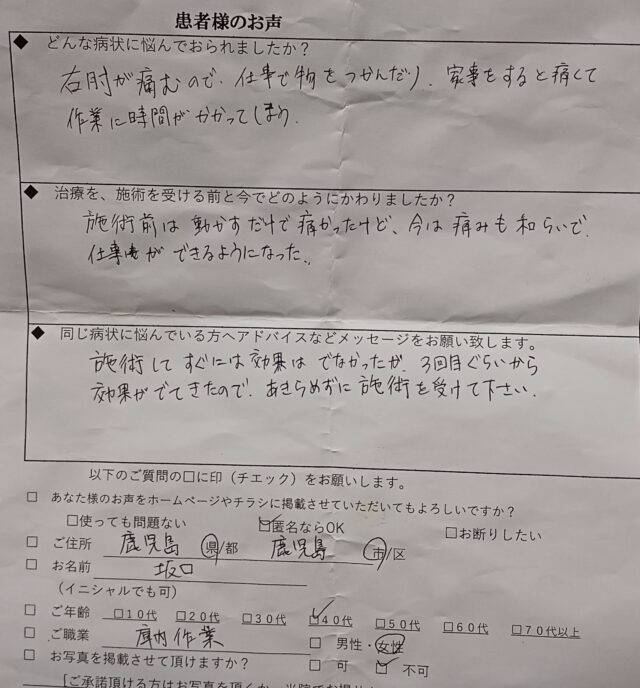 患者様のお声
◆ どんな病状に悩んでおられましたか？
右肘が痛むので、仕事で物をつかんだり、家事をすると痛くて
作業に時間がかかってしまう。
◆ 治療を、施術を受ける前と今でどのようにかわりましたか？
施術前は動かすだけで痛かったけど、今は痛みも和らいで、
仕事ができるようになった。
◆ 同じ病状に悩んでいる方へアドバイスなどメッセージをお願い致します。
施術してすぐには効果はでなかったが、3回目ぐらいから
効果がでてきたので、あきらめずに施術を受けて下さい。
以下のご質問の□に印（チエック）をお願いします。
□ あなた様のお声をホームページやチラシに掲載させていただいてもよろしいですか？
□使っても問題ない ☑匿名ならOK □お断りしたい
□ ご住所 鹿児島 県/都 鹿児島 市/区
□ お名前 坂口
(イニシャルでも可)
□ ご年齢 □10代 □20代 □30代 ☑40代 □50代 □60代 □70代以上
□ ご職業 庫内作業 □ 男性・女性
□ お写真を掲載させて頂けますか？ □ 可 ☑ 不可
[ご承諾頂ける方はお写真を頂くか、当院で